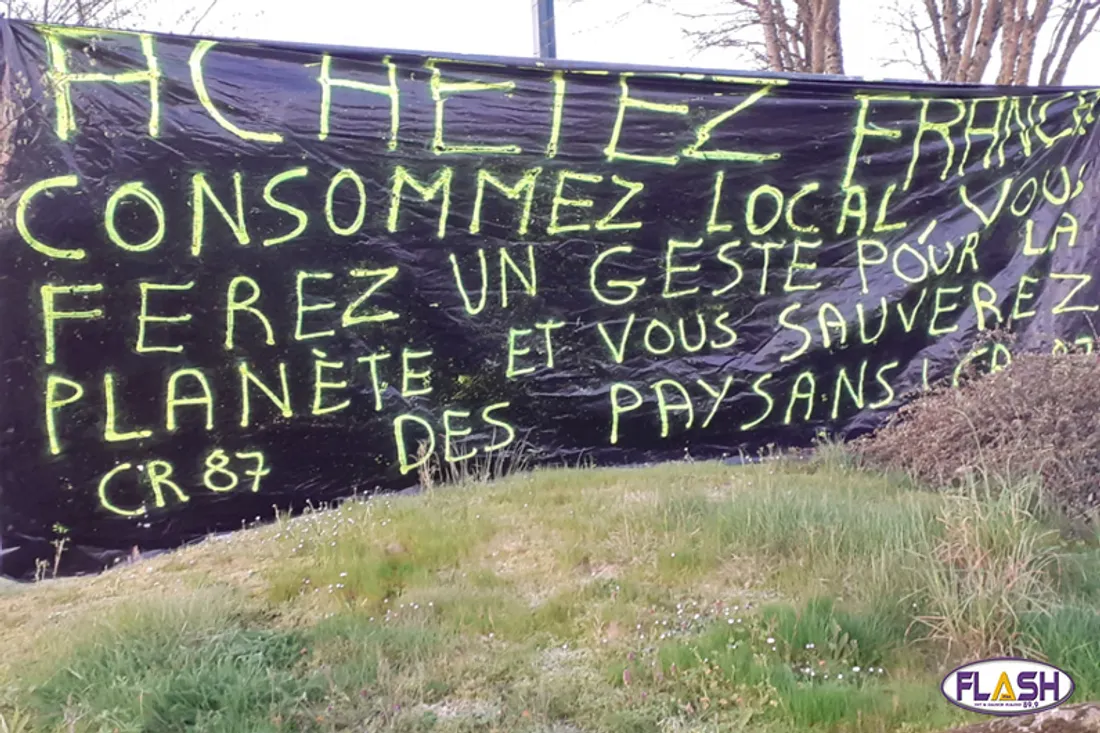 ACHETEZ FRANCA
CONSOMMEZ LOCAL, VOUS
FEREZ UN GESTE POUR LA
PLANÈTE ET VOUS SAUVEREZ
DES PAYSANS
CR 87
FLASH
89.9